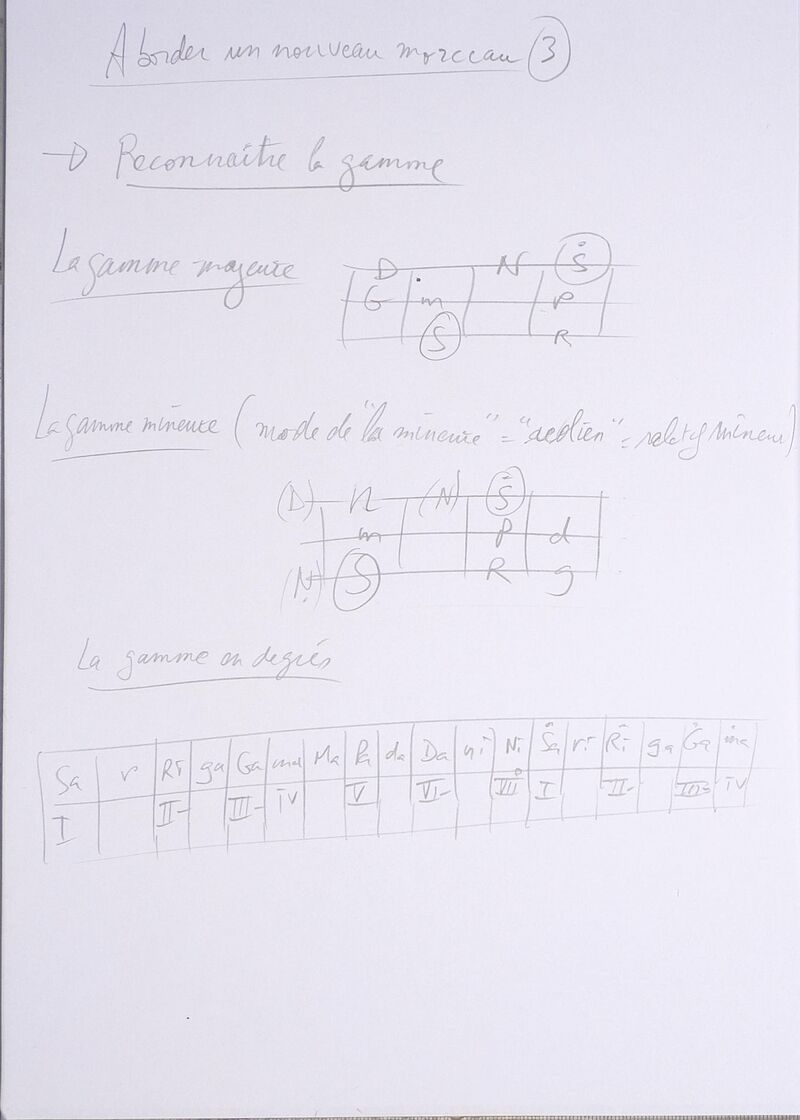 Aborder un nouveau morceau 3
→ Reconnaître la gamme
La gamme majeure
D N Ṡ
G m P
S R
La gamme mineure (mode de "la mineure" = "aeolien" = relatif mineur)
(D) n (N) Ṡ
m P d
(Ṇ) S R g
La gamme en degrés
Sa r Ri ga Ga ma Ma Pa da Da ni Ni Ṡa ri Ṙi ga Ġa ṁa
I II- III- IV V VI- VII° I II- III- IV